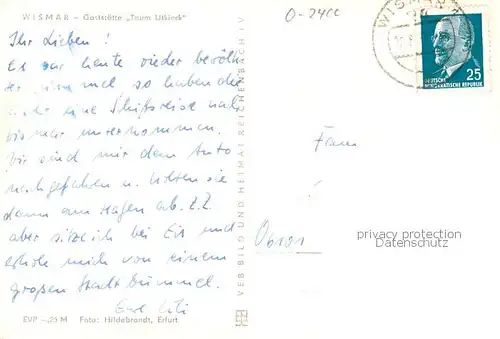 WISMAR – Gaststätte „Teum Utkieck"
O-2400
WISMAR
Ihr Lieben!
Es war heute wieder bevölkter
Himmel so haben die
eine Schiffsreise nach
Wismar unternommen.
Wir sind mit dem Auto
nachgefahren u. holten sie
dann am Hafen ab. Z.Z.
aber sitze ich bei Eis und
erhole mich von einem
großen Stadtbummel.
Eure
25
DEUTSCHE
DEMOKRATISCHE REPUBLIK
Frau
privacy protection
Datenschutz
VEB BILD UND HEIMAT REICHENBACH I V
EVP –,25 M Foto: Hildebrandt, Erfurt